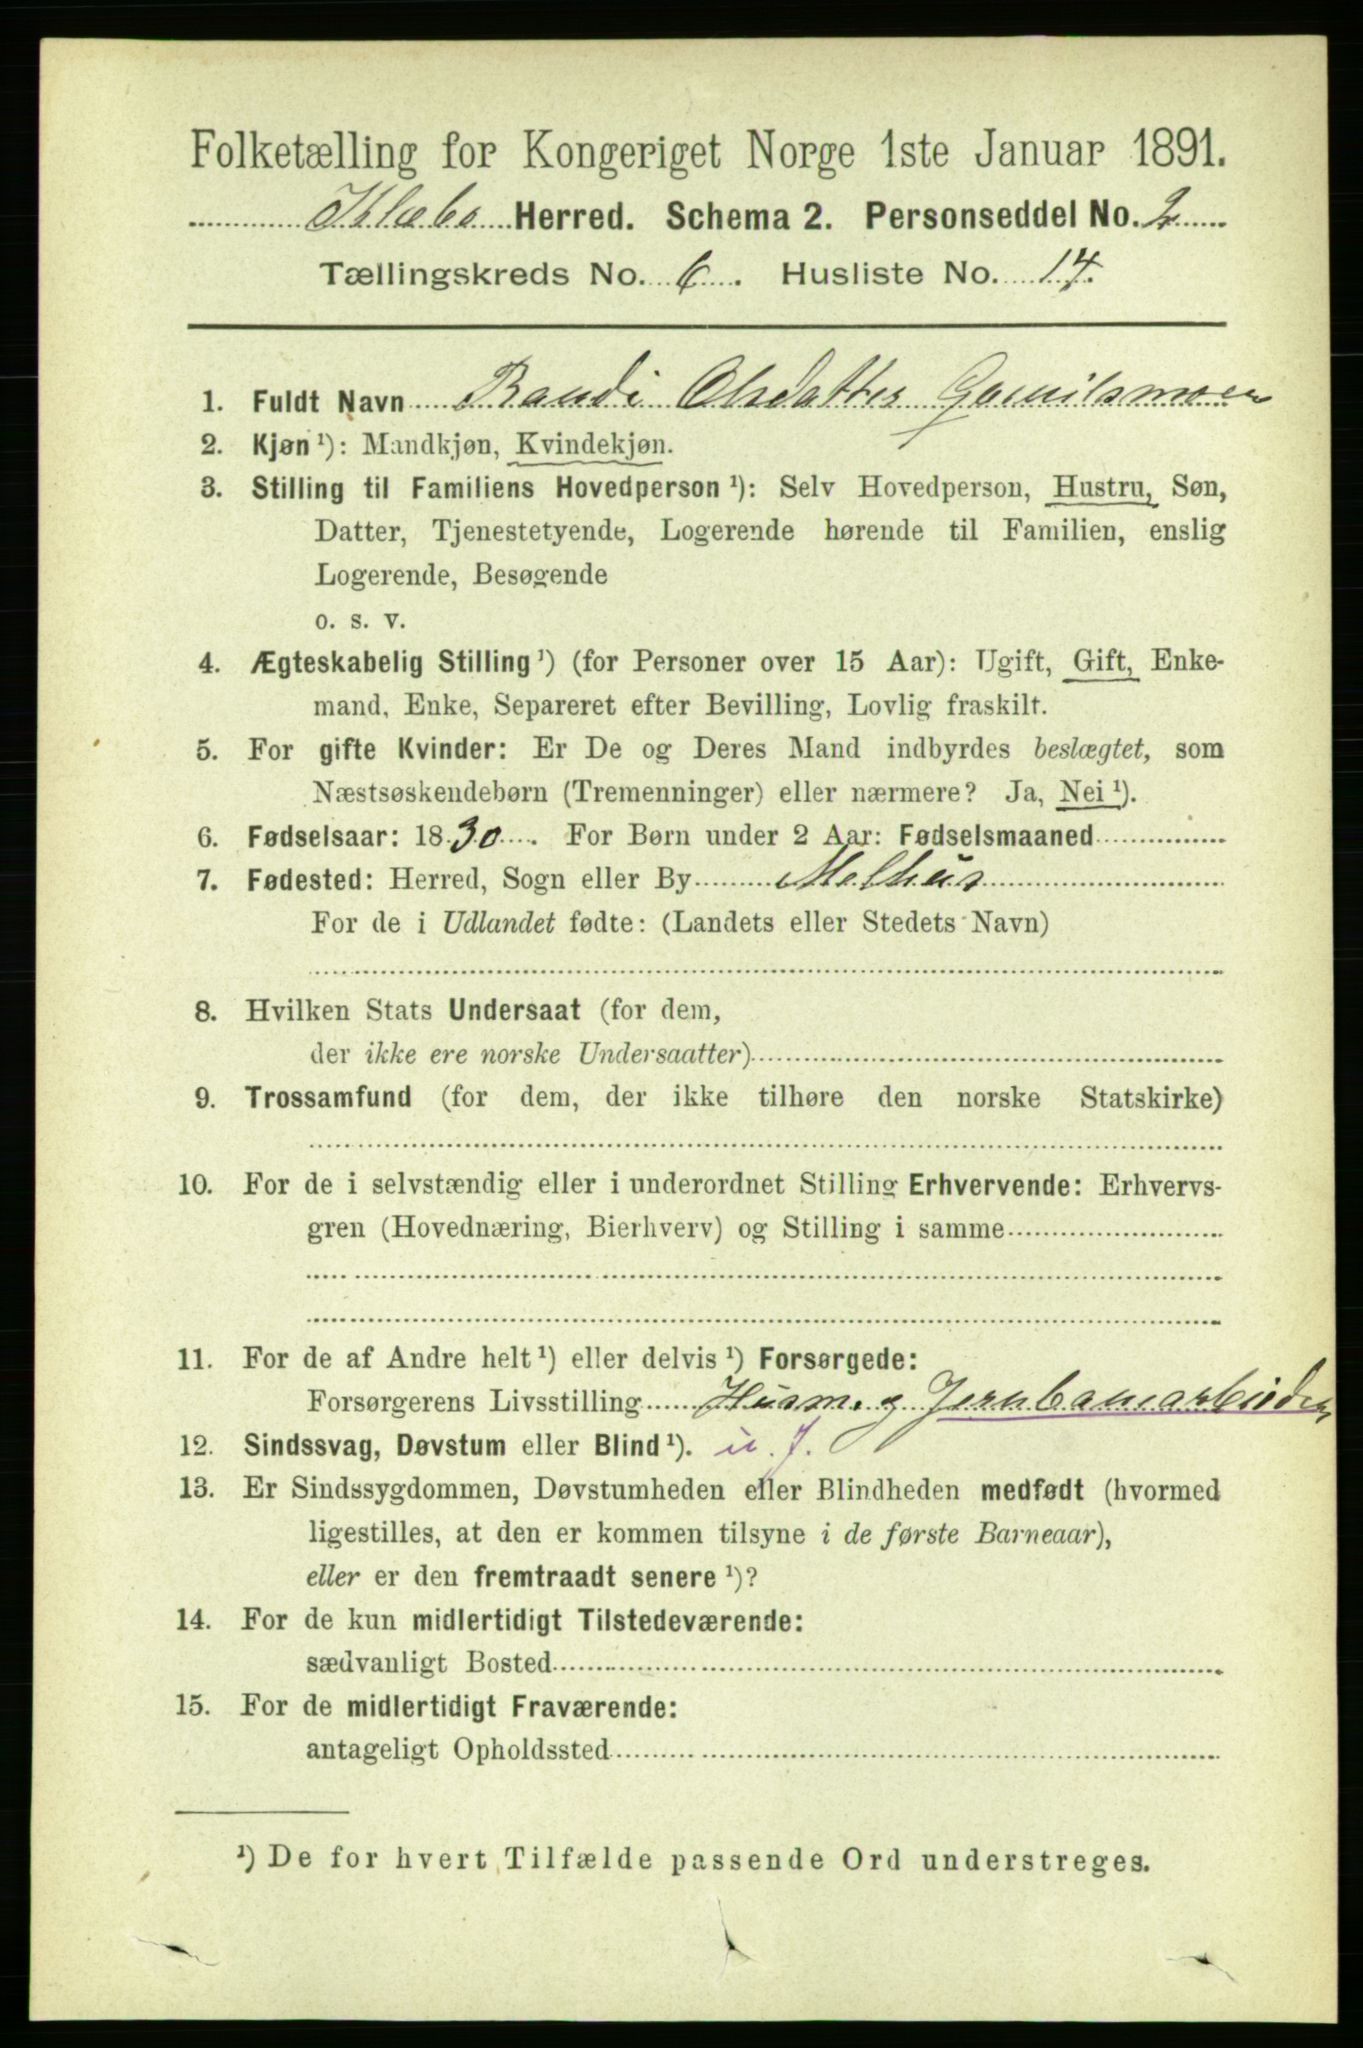 Folketælling for Kongeriget Norge 1ste Januar 1891.
Klæbo Herred. Schema 2. Personseddel No. 2
Tællingskreds No. 6. Husliste No. 14.
1. Fuldt Navn Randi Olsdatter
2. Kjøn ¹): Mandkjøn, Kvindekjøn.
3. Stilling til Familiens Hovedperson ¹): Selv Hovedperson, Hustru, Søn,
Datter, Tjenestetyende, Logerende hørende til Familien, enslig
Logerende, Besøgende
o. s. v.
4. Ægteskabelig Stilling ¹) (for Personer over 15 Aar): Ugift, Gift, Enke-
mand, Enke, Separeret efter Bevilling, Lovlig fraskilt.
5. For gifte Kvinder: Er De og Deres Mand indbyrdes beslægtet, som
Næstsøskendebørn (Tremenninger) eller nærmere? Ja, Nei ¹).
6. Fødselsaar: 1830. For Børn under 2 Aar: Fødselsmaaned
7. Fødested: Herred, Sogn eller By Melhus
For de i Udlandet fødte: (Landets eller Stedets Navn)
8. Hvilken Stats Undersaat (for dem,
der ikke ere norske Undersaatter)
9. Trossamfund (for dem, der ikke tilhøre den norske Statskirke)
10. For de i selvstændig eller i underordnet Stilling Erhvervende: Erhvervs-
gren (Hovednæring, Bierhverv) og Stilling i samme
11. For de af Andre helt ¹) eller delvis ¹) Forsørgede:
Forsørgerens Livsstilling Husm. g Jernbanearbeider
12. Sindssvag, Døvstum eller Blind ¹). u. J.
13. Er Sindssygdommen, Døvstumheden eller Blindheden medfødt (hvormed
ligestilles, at den er kommen tilsyne i de første Barneaar),
eller er den fremtraadt senere ¹)?
14. For de kun midlertidigt Tilstedeværende:
sædvanligt Bosted
15. For de midlertidigt Fraværende:
antageligt Opholdssted
¹) De for hvert Tilfælde passende Ord understreges.